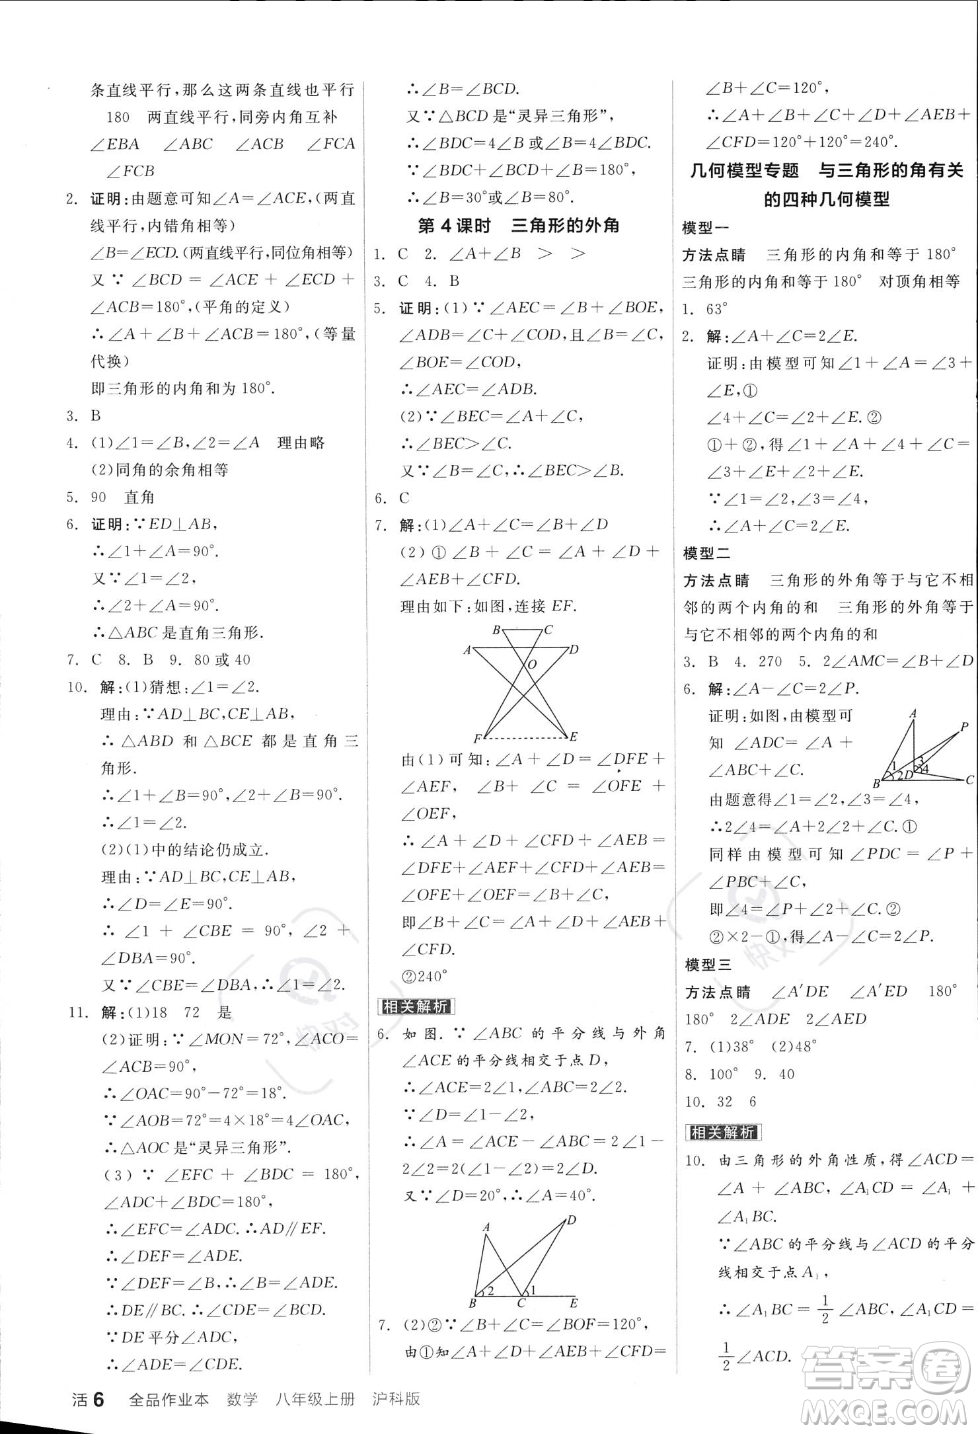 条直线平行，那么这两条直线也平行
180　两直线平行，同旁内角互补
∠EBA　∠ABC　∠FCA　∠ACB
∠FCB
2. 证明：由题意可知∠A=∠ACE，(两直
线平行，内错角相等)
∠B=∠ECD.(两直线平行，同位角相等)
又∵∠BCD=∠ACE+∠ECD+
∠ACB=180°，(平角的定义)
∴∠A+∠B+∠ACB=180°，(等量
代换)
即三角形的内角和为180°.
3. B
4. (1)∠1=∠B，∠2=∠A　理由略
(2)同角的余角相等
5. 90　直角
6. 证明：∵ED⊥AB，
∴∠1+∠A=90°.
又∵∠1=∠2，
∴∠2+∠A=90°.
∴△ABC是直角三角形.
7. C　8. B　9. 80或40
10. 解：(1)猜想：∠1=∠2.
理由：∵AD⊥BC，CE⊥AB，
∴△ABD和△BCE都是直角三
角形.
∴∠1+∠B=90°，∠2+∠B=90°.
∴∠1=∠2.
(2)(1)中的结论仍成立.
理由：∵AD⊥BC，CE⊥AB，
∴∠D=∠E=90°.
∴∠1+∠CBE=90°，∠2+
∠DBA=90°.
又∵∠CBE=∠DBA，∴∠1=∠2.
11. 解：(1)18　72　是
(2)证明：∵∠MON=72°，∠ACO=
∠ACB=90°，
∴∠OAC=90°−72°=18°.
∵∠AOB=72°=4×18°=4∠OAC，
∴△AOC是“灵异三角形”.
(3)∵∠EFC+∠BDC=180°，
∠ADC+∠BDC=180°，
∴∠EFC=∠ADC.∴AD∥EF.
∴∠DEF=∠ADE.
∵∠DEF=∠B，∴∠B=∠ADE.
∴DE∥BC.∴∠CDE=∠BCD.
∵DE平分∠ADC，
∴∠ADE=∠CDE.
∴∠B=∠BCD.
又∵△BCD是“灵异三角形”，
∴∠BDC=4∠B或∠B=4∠BDC.
∵∠BDC+∠BCD+∠B=180°，
∴∠B=30°或∠B=80°.
第4课时　三角形的外角
1. C　2. ∠A+∠B　>　>
3. C　4. B
5. 证明：(1)∵∠AEC=∠B+∠BOE，
∠ADB=∠C+∠COD，且∠B=∠C，
∠BOE=∠COD，
∴∠AEC=∠ADB.
(2)∵∠BEC=∠A+∠C，
∴∠BEC>∠C.
又∵∠B=∠C，∴∠BEC>∠B.
6. C
7. 解：(1)∠A+∠C=∠B+∠D
(2)①∠B+∠C=∠A+∠D+
∠AEB+∠CFD.
理由如下：如图，连接EF.
B C
A D
O
F E
由(1)可知∠A+∠D=∠DFE+
∠AEF，∠B+∠C=∠OFE+
∠OEF，
∴∠A+∠D+∠CFD+∠AEB=
∠DFE+∠AEF+∠CFD+∠AEB=
∠OFE+∠OEF=∠B+∠C，
即∠B+∠C=∠A+∠D+∠AEB+
∠CFD.
②240°
相关解析
6. 如图.∵∠ABC的平分线与外角
∠ACE的平分线相交于点D，
∴∠ACE=2∠1，∠ABC=2∠2.
∵∠D=∠1−∠2，
∴∠A=∠ACE−∠ABC=2∠1−
2∠2=2(∠1−∠2)=2∠D.
又∵∠D=20°，∴∠A=40°.
A D
2 1
B C E
7. (2)②∵∠B+∠C=∠BOF=120°，
由①知∠B+∠C=∠A+∠D+∠AEB+∠CFD，
∠B+∠C=120°，
∴∠A+∠C+∠D+∠B+∠AEB+
∠CFD=120°+120°=240°.
几何模型专题　与三角形的角有关
的四种几何模型
模型一
方法点睛　三角形的内角和等于180°
三角形的内角和等于180°　对顶角相等
1. 63°
2. 解：∠A+∠C=2∠E.
证明：由模型可知∠1+∠A=∠3+
∠E，①
∠4+∠C=∠2+∠E.②
①+②，得∠1+∠A+∠4+∠C=
∠3+∠E+∠2+∠E.
∵∠1=∠2，∠3=∠4，
∴∠A+∠C=2∠E.
模型二
方法点睛　三角形的外角等于与它不相
邻的两个内角的和　三角形的外角等于
与它不相邻的两个内角的和
3. B　4. 270　5. 2∠AMC=∠B+∠D
6. 解：∠A−∠C=2∠P.
证明：如图，由模型可
知∠ADC=∠A+
∠ABC+∠C.
A P
1 3
2 D 4
B C
由题意得∠1=∠2，∠3=∠4，
∴2∠4=∠A+2∠2+∠C.①
同样由模型可知∠PDC=∠P+
∠PBC+∠C，
即∠4=∠P+∠2+∠C.②
②×2−①，得∠A−∠C=2∠P.
模型三
方法点睛　∠A′DE　∠A′ED　180°
180°　2∠ADE　2∠AED
7. (1)38°　(2)48°
8. 100°　9. 40
10. 32　6
相关解析
10. 由三角形的外角性质，得∠ACD=
∠A+∠ABC，∠A₁CD=∠A₁+
∠A₁BC.
∵∠ABC的平分线与∠ACD的平分
线相交于点A₁，
∴∠A₁BC=1/2∠ABC，∠A₁CD=
1/2∠ACD.
活6　全品作业本　数学　八年级上册　沪科版
快对
快对
答案圈
MXQE.COM